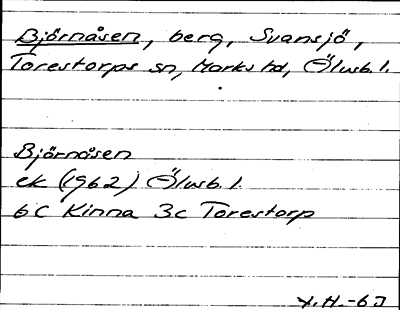 Björnåsen, berg, Svansjö,
Torestorps sn, Marks hd, Älvsb. l.
Björnåsen
ek (1962) Älvsb. l.
6C Kinna 3c Torestorp